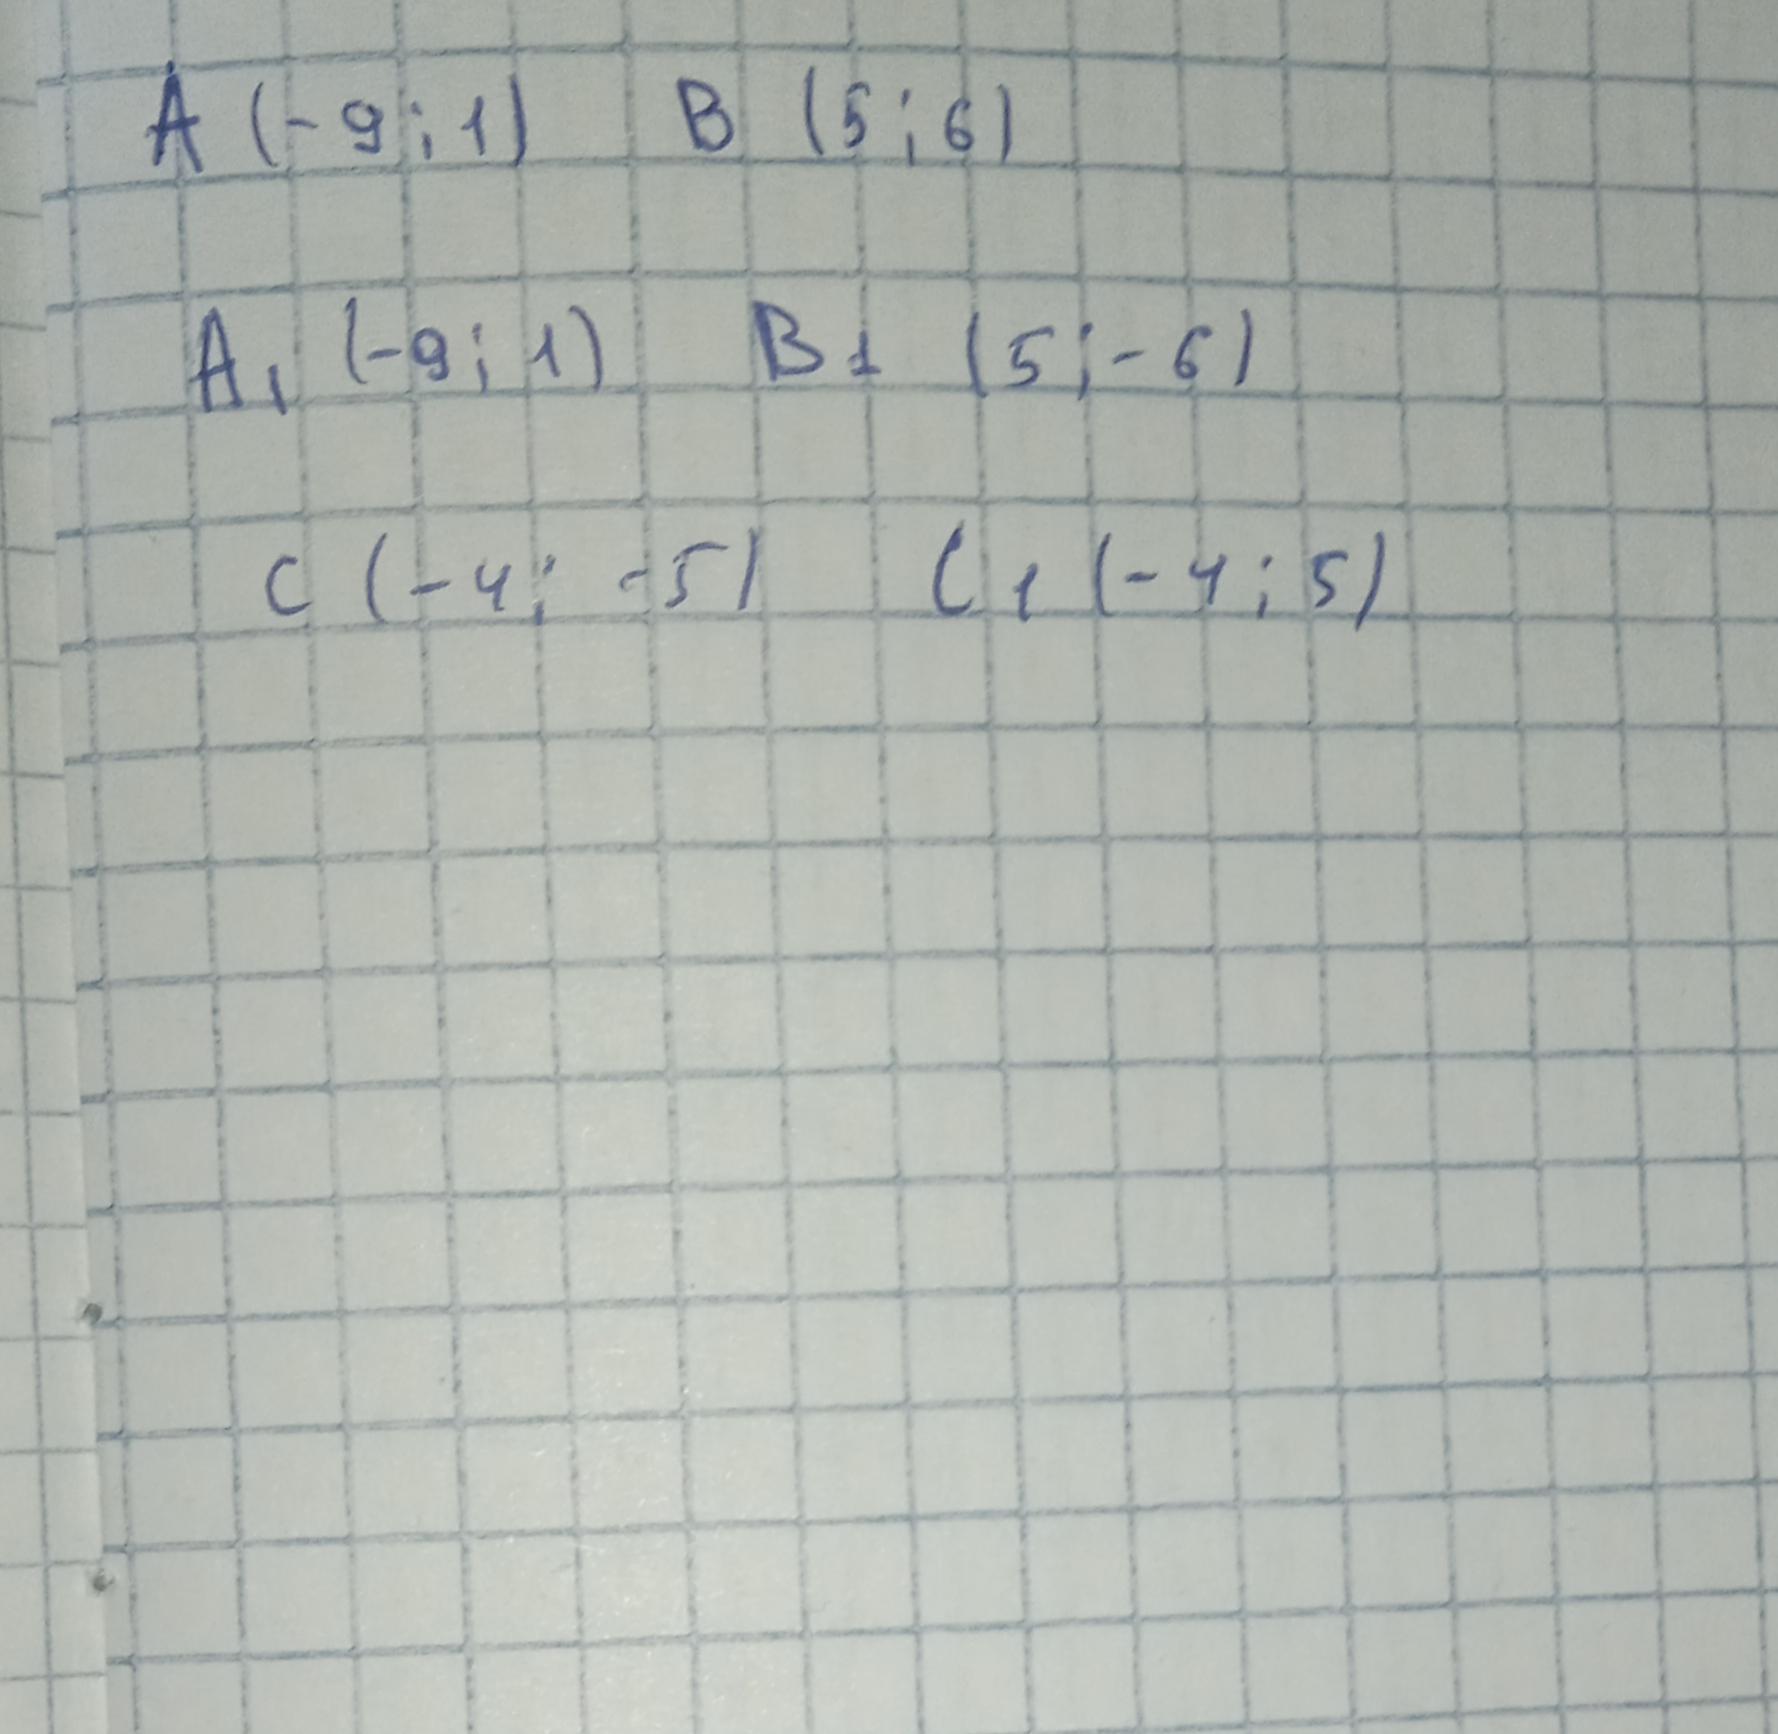 A (-9; 1) B (5; 6)
A1 (-9; 1) B1 (5; -6)
C (-4; -5) C1 (-4; 5)